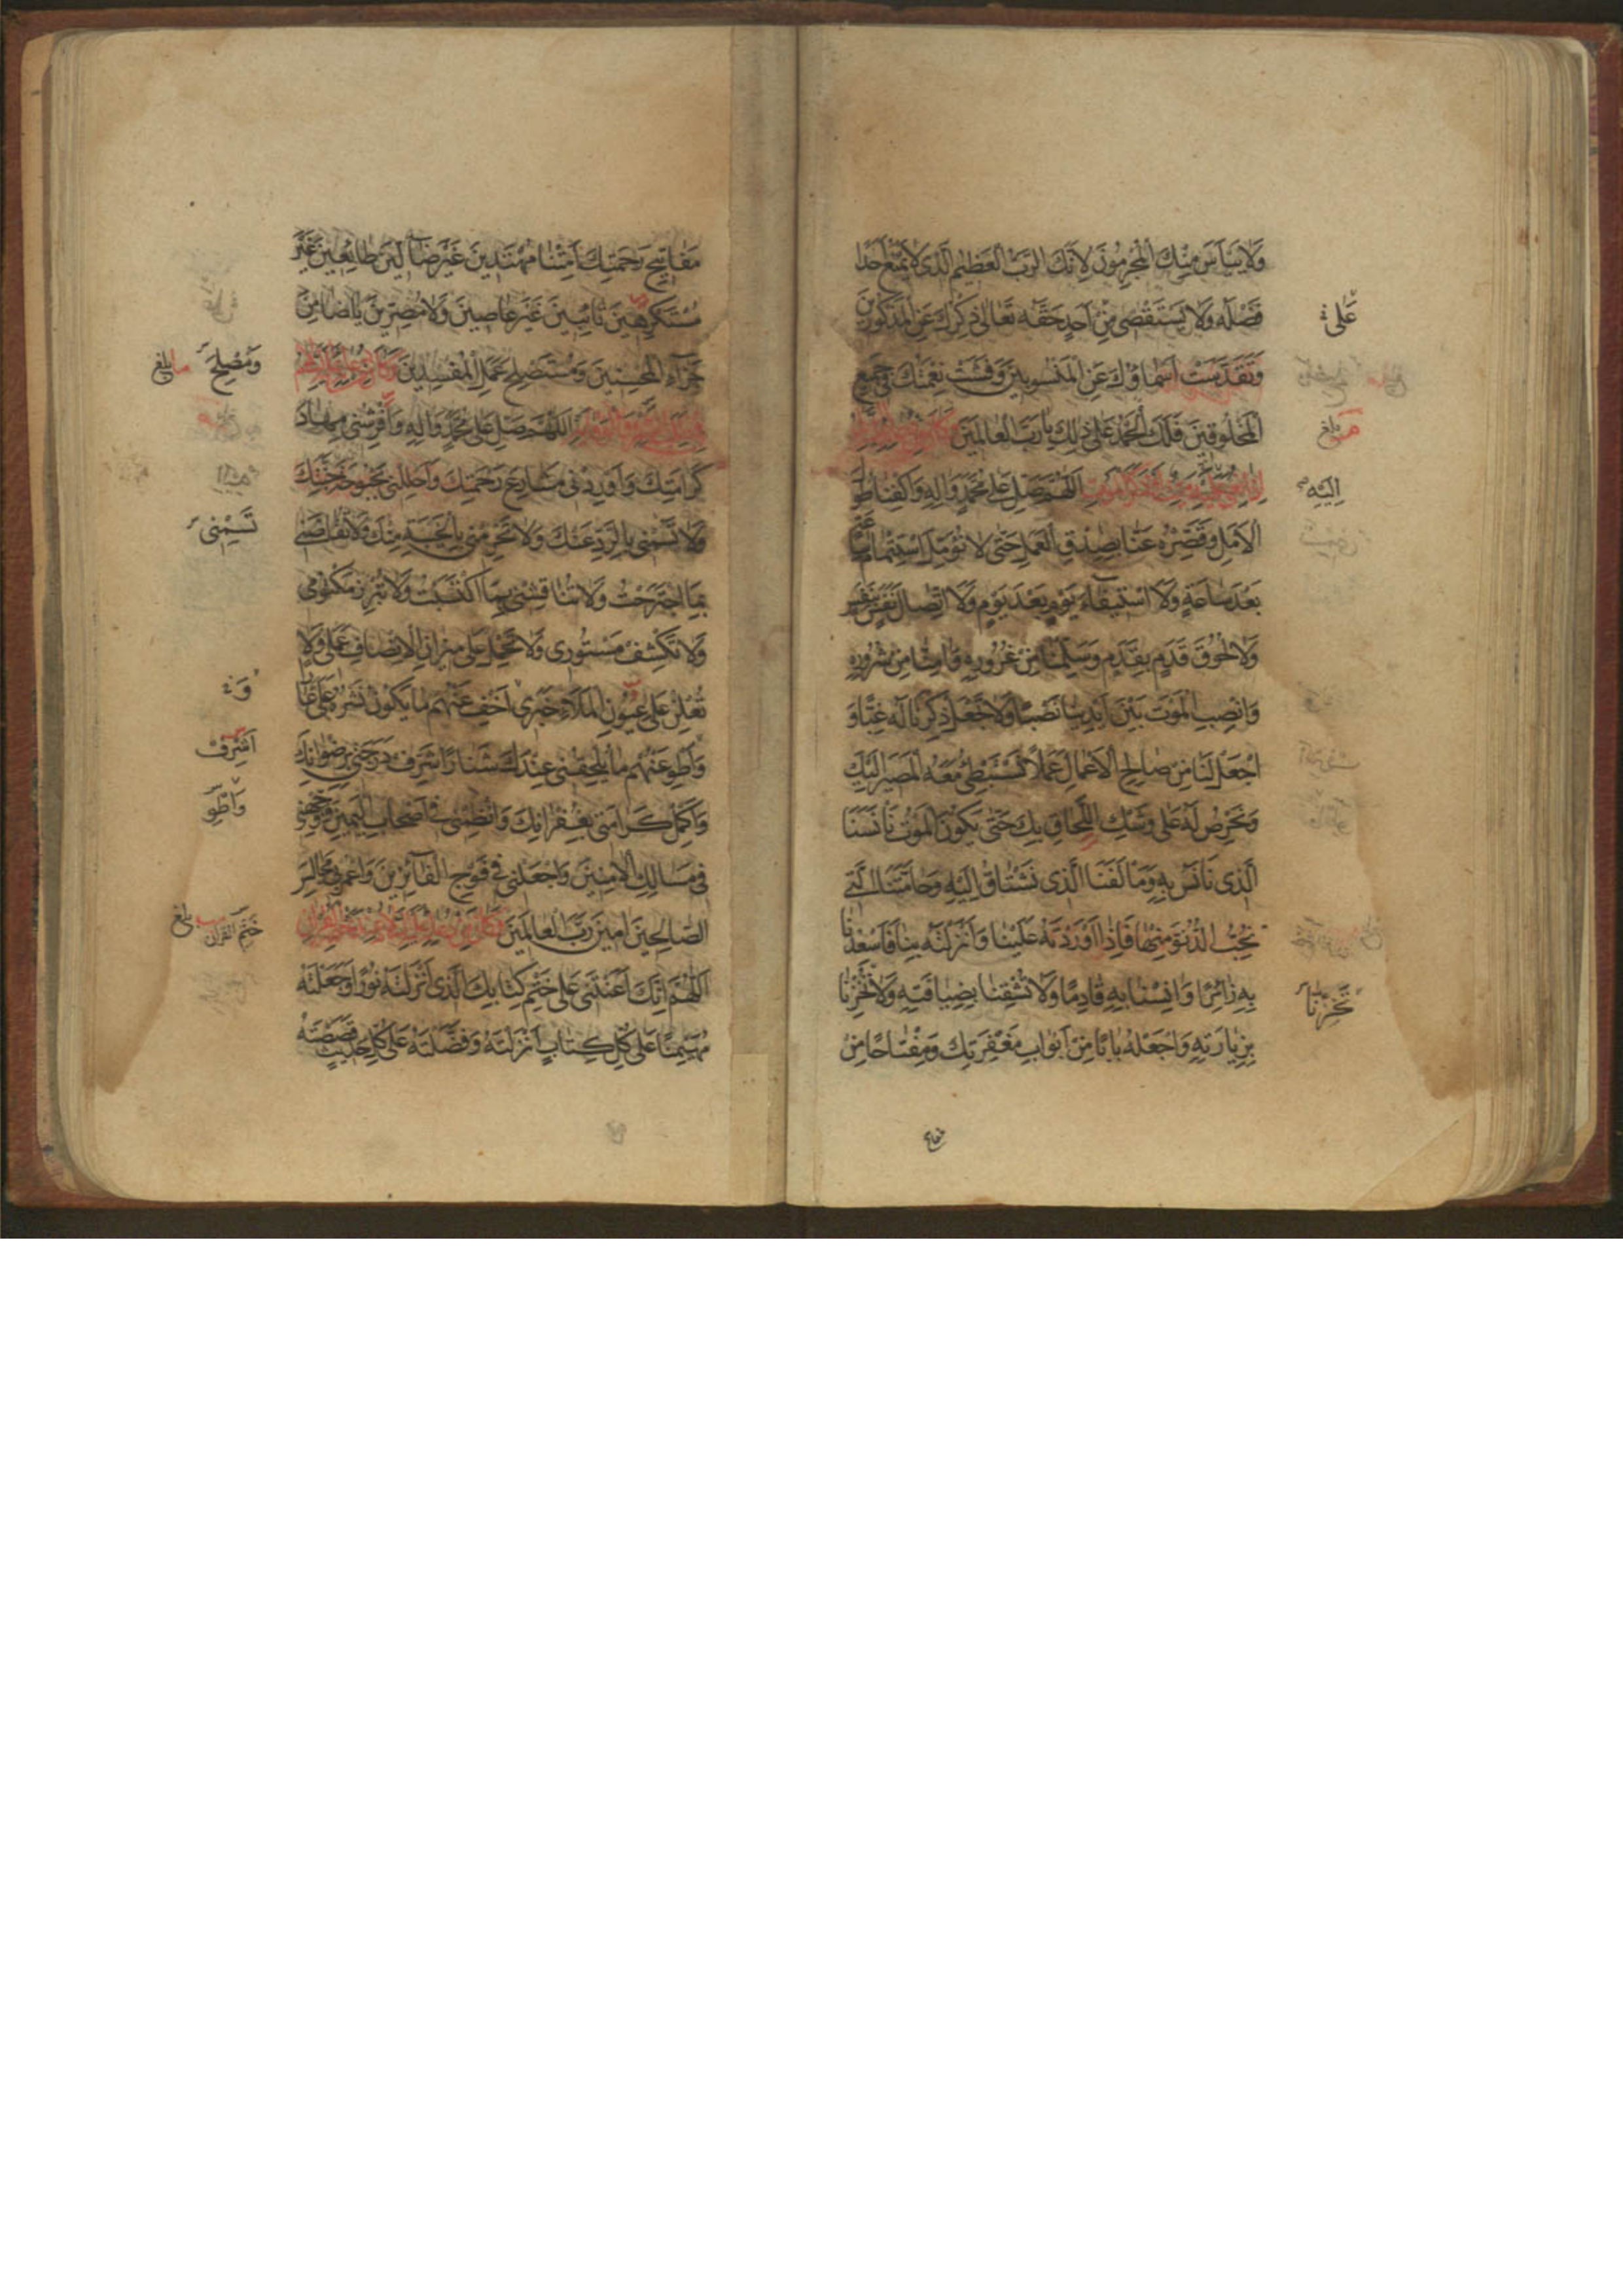 وَلَا يَيْأَسَ مِنْكَ الْمُجْرِمُونَ لِأَنَّكَ الرَّبُّ الْعَظِيمُ الَّذِي لَا يَمْنَعُ أَحَدًا
فَضْلَهُ وَلَا يَسْتَقْصِي مِنْ أَحَدٍ حَقَّهُ تَعَالَى ذِكْرُكَ عَنِ الْمَذْكُورِينَ
عَلَى
وَتَقَدَّسَتْ أَسْمَاؤُكَ عَنِ الْمَنْسُوبِينَ وَفَشَتْ نِعْمَتُكَ فِي جَمِيعِ
الْمَخْلُوقِينَ فَلَكَ الْحَمْدُ عَلَى ذَلِكَ يَا رَبَّ الْعَالَمِينَ
بلغ
اللَّهُمَّ صَلِّ عَلَى مُحَمَّدٍ وَآلِهِ وَاكْفِنَا طُولَ
إِلَيْهِ
الْأَمَلِ وَقَصِّرْهُ عَنَّا بِصِدْقِ الْعَمَلِ حَتَّى لَا نُؤَمِّلَ اسْتِتْمَامَ سَاعَةٍ
بَعْدَ سَاعَةٍ وَلَا اسْتِيفَاءَ يَوْمٍ بَعْدَ يَوْمٍ وَلَا اتِّصَالَ نَفَسٍ بِنَفَسٍ
وَلَا لُحُوقَ قَدَمٍ بِقَدَمٍ وَسَلِّمْنَا مِنْ غُرُورِهِ وَآمِنَّا مِنْ شُرُورِهِ
وَانْصِبِ الْمَوْتَ بَيْنَ أَيْدِينَا نَصْبًا وَلَا تَجْعَلْ ذِكْرَنَا لَهُ غِبًّا وَ
اجْعَلْ لَنَا مِنْ صَالِحِ الْأَعْمَالِ عَمَلًا نَسْتَبْطِئُ مَعَهُ الْمَصِيرَ إِلَيْكَ
وَنَحْرِصُ لَهُ عَلَى وَشْكِ اللَّحَاقِ بِكَ حَتَّى يَكُونَ الْمَوْتُ مَأْنَسَنَا
الَّذِي نَأْنَسُ بِهِ وَمَأْلَفَنَا الَّذِي نَشْتَاقُ إِلَيْهِ وَحَامَّتَنَا الَّتِي
نُحِبُّ الدُّنُوَّ مِنْهَا فَإِذَا أَوْرَدْتَهُ عَلَيْنَا وَأَنْزَلْتَهُ بِنَا فَأَسْعِدْنَا
بِهِ زَائِرًا وَآنِسْنَا بِهِ قَادِمًا وَلَا تُشْقِنَا بِضِيَافَتِهِ وَلَا تُخْزِنَا
تُخْزِنَا
بِزِيَارَتِهِ وَاجْعَلْهُ بَابًا مِنْ أَبْوَابِ مَغْفِرَتِكَ وَمِفْتَاحًا مِنْ
مَفَاتِيحِ رَحْمَتِكَ أَمِتْنَا مُهْتَدِينَ غَيْرَ ضَالِّينَ طَائِعِينَ غَيْرَ
مُسْتَكْرِهِينَ تَائِبِينَ غَيْرَ عَاصِينَ وَلَا مُصِرِّينَ يَا ضَامِنَ
جَزَاءِ الْمُحْسِنِينَ وَمُسْتَصْلِحَ عَمَلِ الْمُفْسِدِينَ
وَمُصْلِحَ بلغ
اللَّهُمَّ صَلِّ عَلَى مُحَمَّدٍ وَآلِهِ وَأَفْرِشْنِي مِهَادَ
كَرَامَتِكَ وَأَوْرِدْنِي مَشَارِعَ رَحْمَتِكَ وَأَحْلِلْنِي بُحْبُوحَةَ جَنَّتِكَ
وَلَا تَسُمْنِي بِالرَّدِّ عَنْكَ وَلَا تَحْرِمْنِي بِالْخَيْبَةِ مِنْكَ وَلَا تُقَاصَّنِي
تَسِمْنِي
بِمَا اجْتَرَحْتُ وَلَا تُنَاقِشْنِي بِمَا اكْتَسَبْتُ وَلَا تُبْرِزْ مَكْتُومِي
وَلَا تَكْشِفْ مَسْتُورِي وَلَا تَحْمِلْ عَلَى مِيزَانِ الْإِنْصَافِ عَمَلِي وَلَا
تُعْلِنْ عَلَى عُيُونِ الْمَلَأِ خَبَرِي أَخْفِ عَنْهُمْ مَا يَكُونُ نَشْرُهُ عَلَيَّ عَارًا
وَاطْوِ عَنْهُمْ مَا يُلْحِقُنِي عِنْدَكَ شَنَارًا شَرِّفْ دَرَجَتِي بِرِضْوَانِكَ
أَشْرِفْ
وَأَكْمِلْ كَرَامَتِي بِغُفْرَانِكَ وَانْظِمْنِي فِي أَصْحَابِ الْيَمِينِ وَوَجِّهْنِي
وَاطْوِ
فِي مَسَالِكِ الْآمِنِينَ وَاجْعَلْنِي فِي فَوْجِ الْفَائِزِينَ وَاعْمُرْ بِي مَجَالِسَ
الصَّالِحِينَ آمِينَ رَبَّ الْعَالَمِينَ
خَتْمِ الْقُرْآنِ بلغ
اللَّهُمَّ إِنَّكَ أَعَنْتَنِي عَلَى خَتْمِ كِتَابِكَ الَّذِي أَنْزَلْتَهُ نُورًا وَجَعَلْتَهُ
مُهَيْمِنًا عَلَى كُلِّ كِتَابٍ أَنْزَلْتَهُ وَفَضَّلْتَهُ عَلَى كُلِّ حَدِيثٍ قَصَصْتَهُ